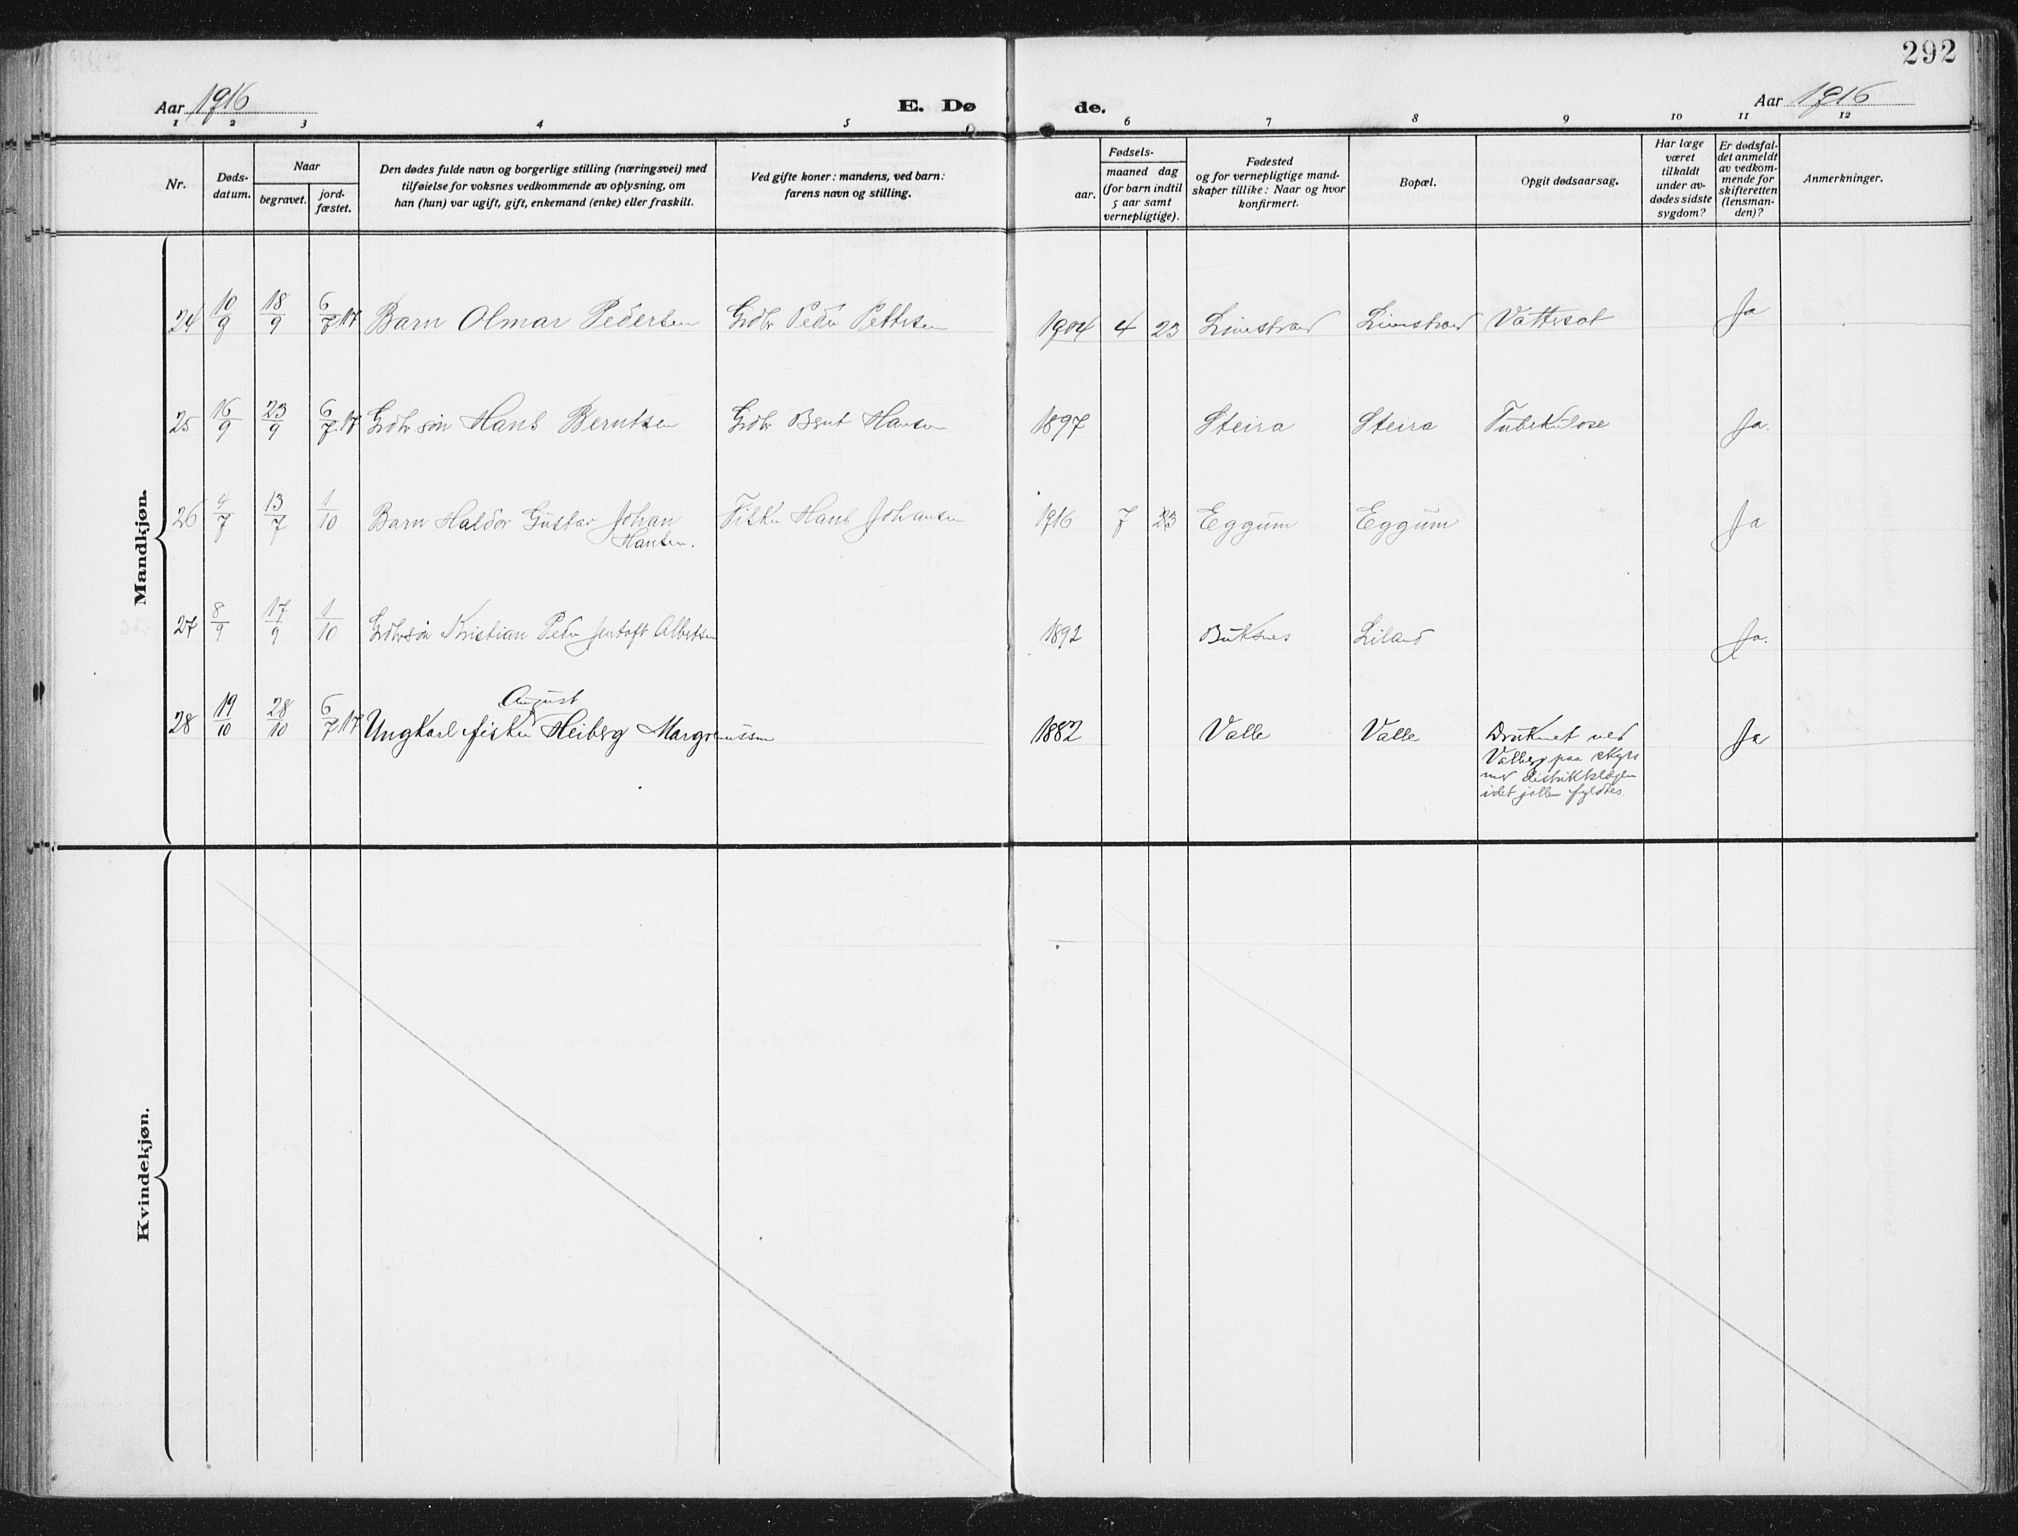 292
Aar 1916
E. Dø
de.
Aar 1916
1 2 3 4 5 6 7 8 9 10 11 12
Nr.
Døds-
datum.
Naar
begravet.
jord-
fæstet.
Den dødes fulde navn og borgerlige stilling (næringsvei) med
tilføielse for voksnes vedkommende av oplysning, om
han (hun) var ugift, gift, enkemand (enke) eller fraskilt.
Ved gifte koner: mandens, ved barn:
farens navn og stilling.
Fødsels-
aar.
maaned dag
(for barn indtil
5 aar samt
vernepligtige).
Fødested
og for vernepligtige mand-
skaper tillike: Naar og hvor
konfirmert.
Bopæl.
Opgit dødsaarsag.
Har læge
været
tilkaldt
under av-
dødes sidste
sygdom?
Er dødsfal-
det anmeldt
av vedkom-
mende for
skifteretten
(lensman-
den)?
Anmerkninger.
Mandkjøn.
24 10/9 18/9 6/7 17 Barn Olmar Pedersen Grdbr Peder Pettersen 1904 4 23 Limstrand Limstrand Vattersot Ja
25 16/9 23/9 6/7 17 Grdbr søn Hans Berntsen Grdbr Bernt Hansen 1897 Steira Steira Tuberkulose Ja.
26 4/7 13/7 1/10 Barn Haldor Gustav Johan Fisker Hans Johansen 1916 7 23 Eggum Eggum Ja
Hansen.
27 8/9 17/9 1/10 Grdbrsøn Kristian Peder Jentoft Albertsen 1892 Buksnes Liland Ja.
August
28 19/10 28/10 6/7 17 Ungkarl fisker Heiberg Margreussen 1882 Valle Valle Druknet ved Ja
Valberg paa skyss
med distriktslægen
idet jollen fyldtes.
Kvindekjøn.